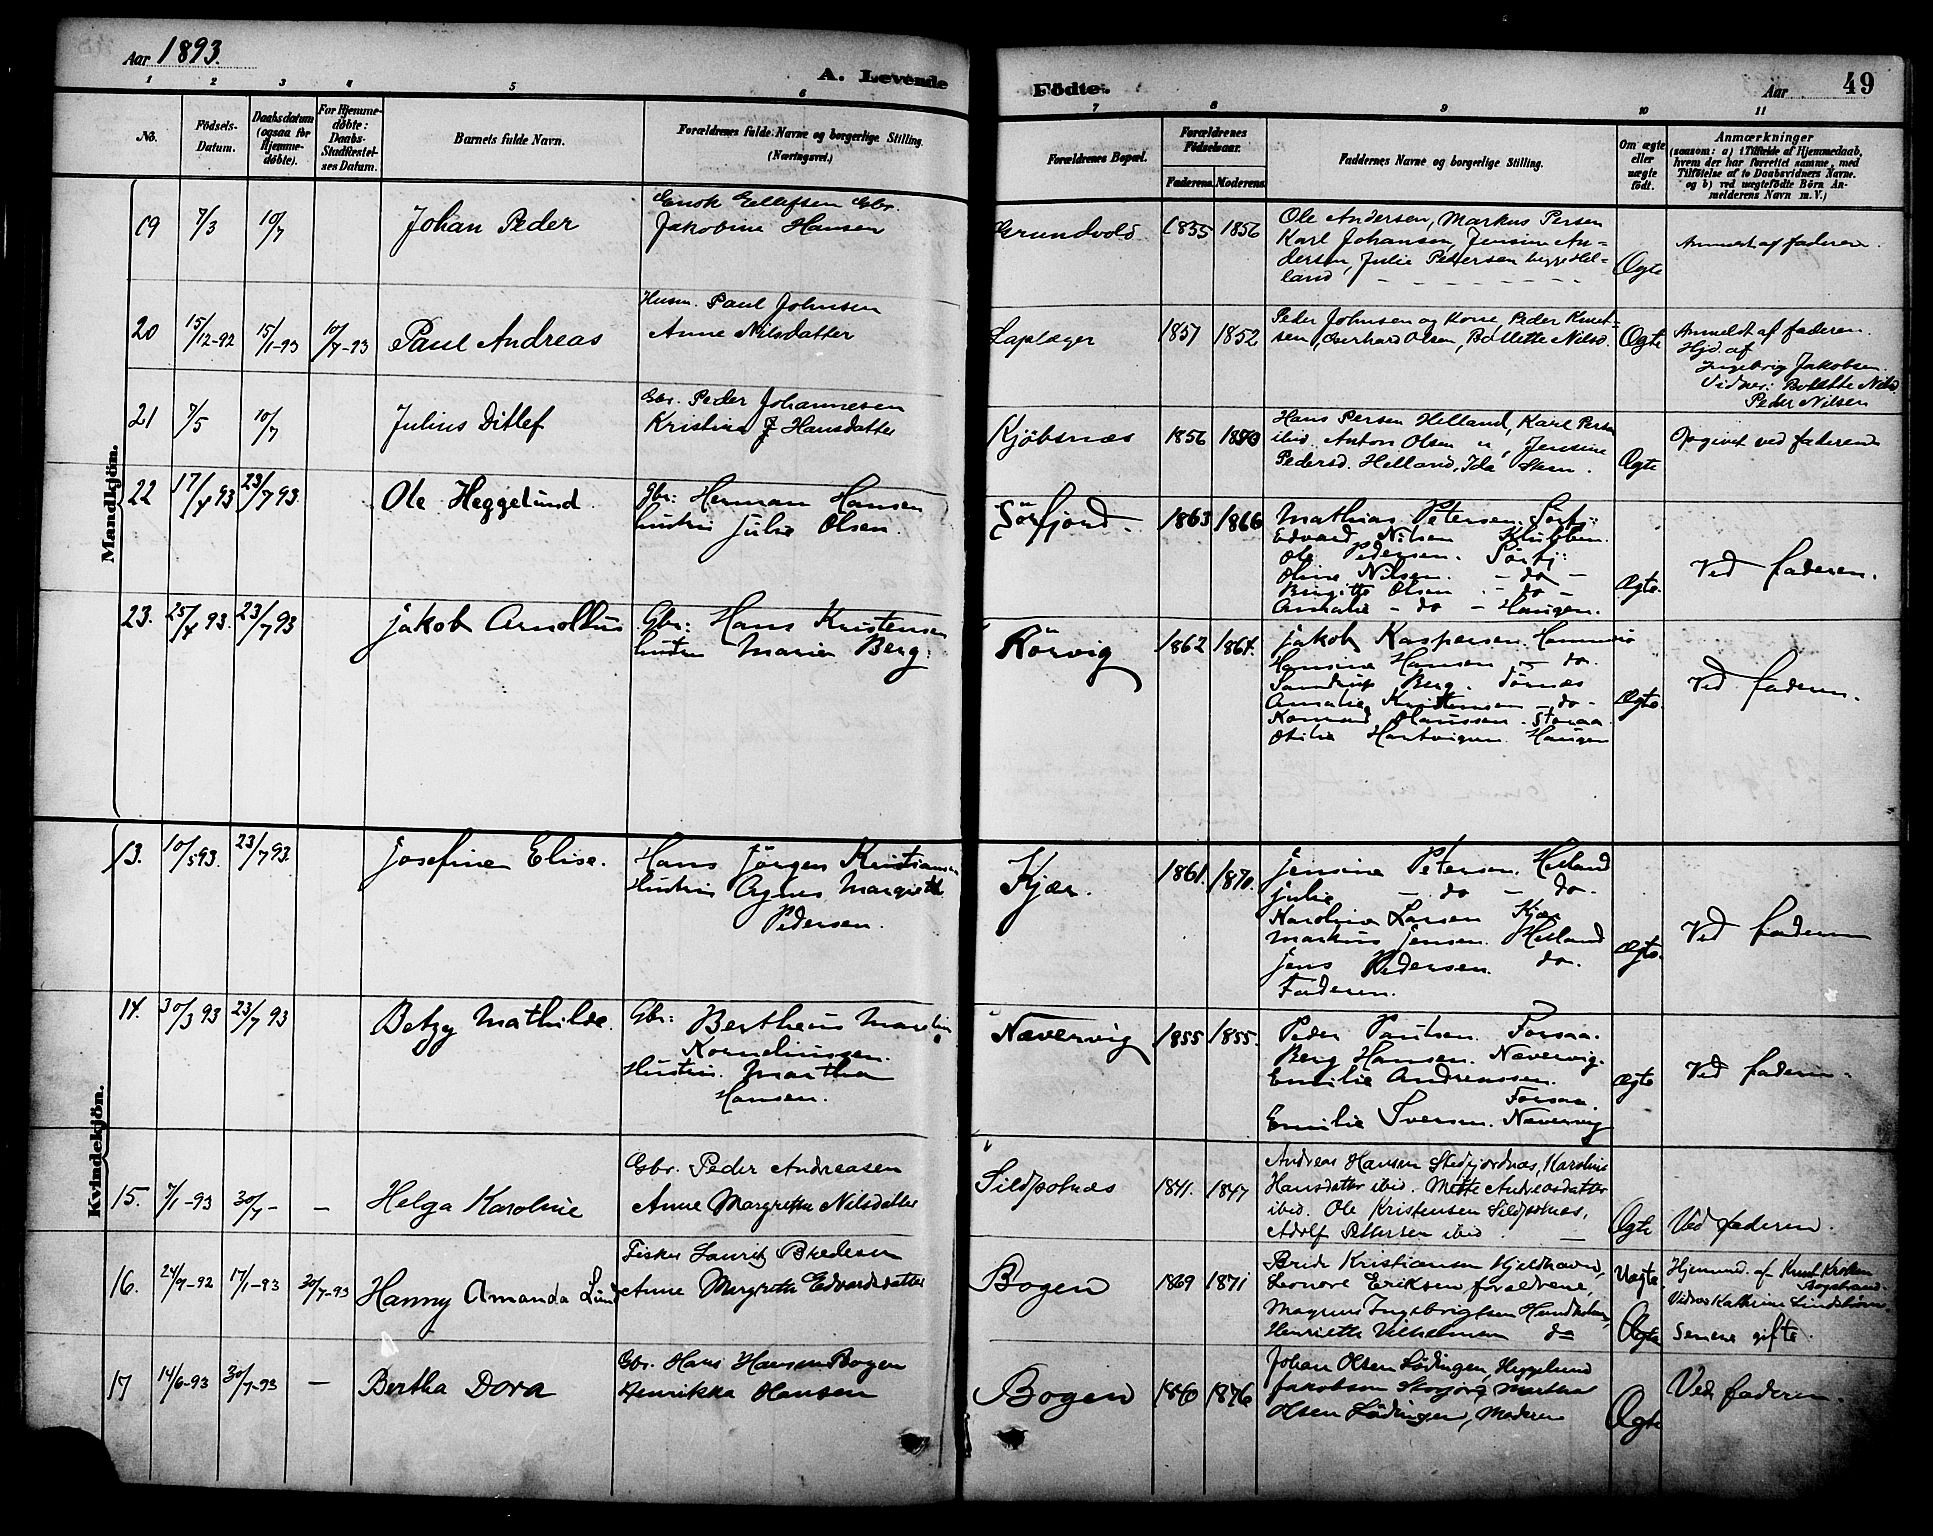 Aar 1893.
A. Levende
Födte.
Aar
49
1 2 3 4 5 6 7 8 9 10 11
No.
Födsels-
Datum.
Daabsdatum
(ogsaa for
Hjemme-
döbte).
For Hjemme-
döbte:
Daabs-
Stadfæstel-
ses Datum.
Barnets fulde Navn.
Forældrenes fulde Navne og borgerlige Stilling.
(Næringsvei.)
Forældrenes Bopæl.
Forældrenes
Födselsaar.
Faderens. Moderens.
Faddernes Navne og borgerlige Stilling.
Om ægte
eller
uægte
födt.
Anmærkninger
(saasom: a) i Tilfælde af Hjemmedaab,
hvem der har forrettet samme, med
Tilföielse af to Daabsvidners Navne.
og b) ved uægtefödte Börn An-
melderens Navn m. V.)
Mandkjön.
19 7/3 10/7 Johan Peder
Enok Ellefsen Gbr.
Jakobine Hansen
Grundvold 1835 1856
Ole Andersen, Markus Persen
Karl Johansen, Jensine An-
dersen, Julie Pedersen begge Hel-
land
Ægte
Anmeldt af faderen.
20 15/12-92 15/1-93 10/7-93 Paul Andreas
Husm. Paul Johnsen
Anne Nilsdatter
Laplæger 1851 1852
Peder Johnsen og Kone, Peder Knut-
sen, Everhard Olsen, Bollette Nilsd.
Ægte
Anmeldt af faderen.
Hjd. af
Ingebrig Jakobsen.
Vidner: Bollette Nilsd
Peder Nilsen
21 7/5 10/7 Julius Ditlef
Gbr. Peder Johannesen
Kristine J Hansdatter
Kjöbsnæs 1856
Hans Persen Helland, Karl Persen
ibid. Anton Olsen, Jensine
Pedersd. Helland, Ida
Ægte
Opgivet ved faderen
22 17/4 93 23/7 93. Ole Heggelund.
Gbr: Herman Hansen
hustru Julie Olsen.
Sörfjord. 1863 1866
Mathias Petersen. Sörfj:
Edvard Nilsen Klubben.
Ole Pedersen. Sörfj:
Oline Nilsen. - do -
Birgitte Olsen - do -
Amalie - do - Haugen.
Ægte.
Ved faderen.
23. 25/4 93. 23/7 93 Jakob Arnoldus
Gbr: Hans Kristensen
hustru Marie Berg.
Rörvig 1862 1864.
Jakob Kaspersen. Hammerö
Hansine Hansen - do.
Sandrup Berg. Törnæs
Amalie Kristensen - do -
Konrad Hanssen. Storaa.
Otilie Hartvigsen. Haugen
Ægte.
Ved faderen.
Kvindekjön.
13. 10/5 93. 23/7 93. Josefine Elise.
Hans Jörgen Kristiansen
Hustru Agnes Margreth
Pedersen.
Kjær. 1861. 1870.
Jensine Petersen. Helland
Julie - do - do.
Karoline Larsen Kjær
Markus Jensen. Helland
Jens Pedersen. do.
Faderen.
Ægte.
Ved faderen
14. 30/3 93 23/7 93 Betzy Mathilde.
Gbr: Bertheus Martin
Korneliussen.
Hustru. Martha
Hansen.
Nævervig 1855 1855.
Peder Paulsen. Forsaa.
Berg Hansen. Nævervig.
Emilie Andreassen.
Forsaa.
Emilie Iversen. Nævervig
Ægte
Ved faderen.
15. 7/1-93 30/7- - Helga Karoline
Gbr. Peder Andreasen
Anne Margrethe Nilsdatter
Sildpolnæs 1841. 1847
Andreas Hansen Stedfjordnæs, Karoline
Hansdatter ibid. Mette Andreasdatter
ibid. Ole Kristensen Sildpolnæs,
Adolf Pettersen ibid.
Ægte
Ved faderen.
16. 24/9-92 17/1-93 30/7-93 Hanny Amanda Lund
Fisker Laurits Bredesen
Anne Margrethe Edvardsdatter
Bogen 1869 1871
Brede Kristiansen Kjeldhavn,
Leonore Eriksen, forældrene,
Magnus Ingebrigtsen Hundholm,
Henriette Vilhelmsen do
Uægte.
Ægte
Hjemmed. af Knut Kroken
Bogstrand.
Vidner Kathrine Lindstrøm.
Senere gifte.
17 14/6-93 30/7-93 - Bertha Dora
Gbr. Hans Hansen Bogen
Henrikka Hansen
Bogen
Johan Olsen Lödingen, Heggelund
Jakobsen Skogöy, Martha
Olsen Lödingen, Moderen
Ægte
Ved faderen.